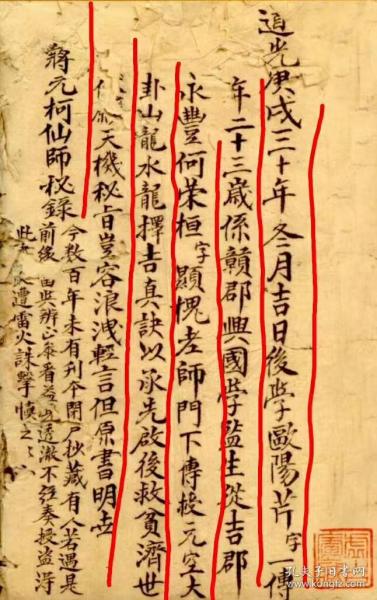 道光庚戌三十年冬月吉日後學歐陽芹字一傳
年二十三歲係贛郡興國學監生從吉郡
永豐何荣桓字顯槐老師門下傳授元空大
卦山龍水龍擇吉真訣以承先啟後救貧濟世
天機秘旨豈容浪洩輕言但原書明
蔣元柯仙師秘錄
今数百年未有刊今閉戶抄藏有人若遇是
前後 辨 看 透澈不強奏授盜淂
此 遭雷火誅擊慎之
孔夫子旧书网